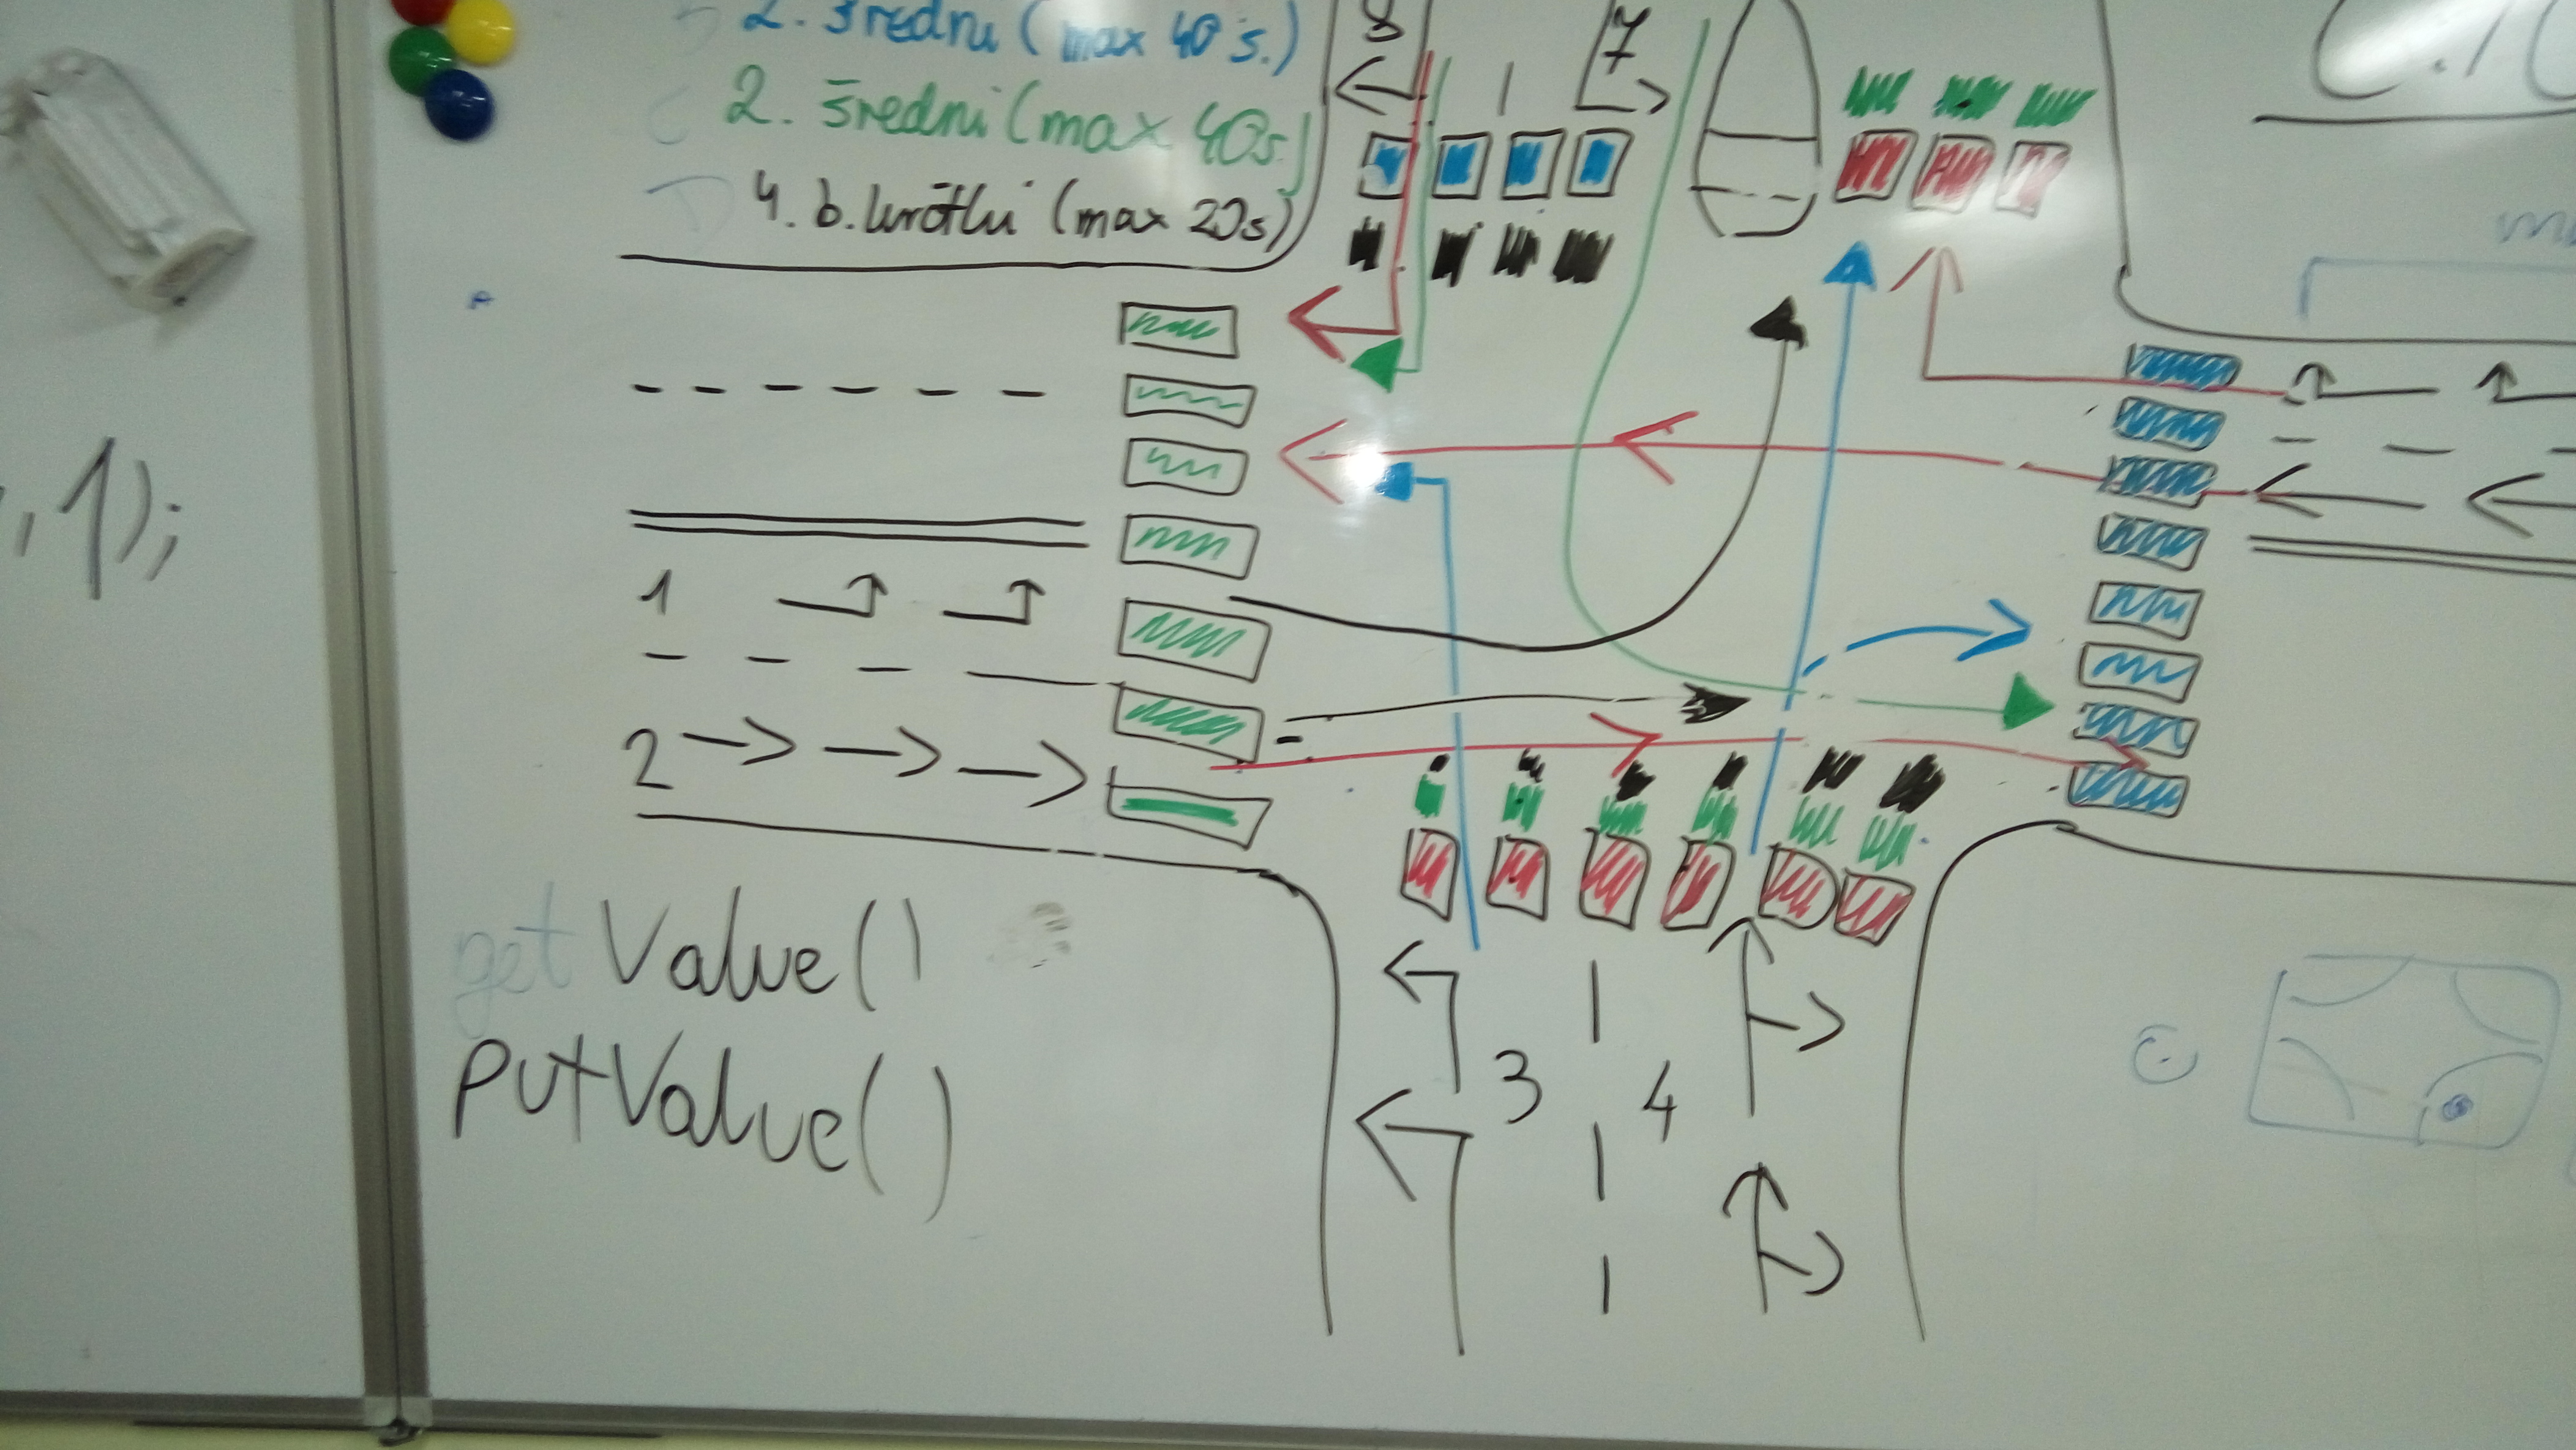 2. średni (max 40 s.)
2. średni (max 40s)
4. b. krótki (max 20s)
8
7
, 1);
1
2
3
4
get Value()
putValue()